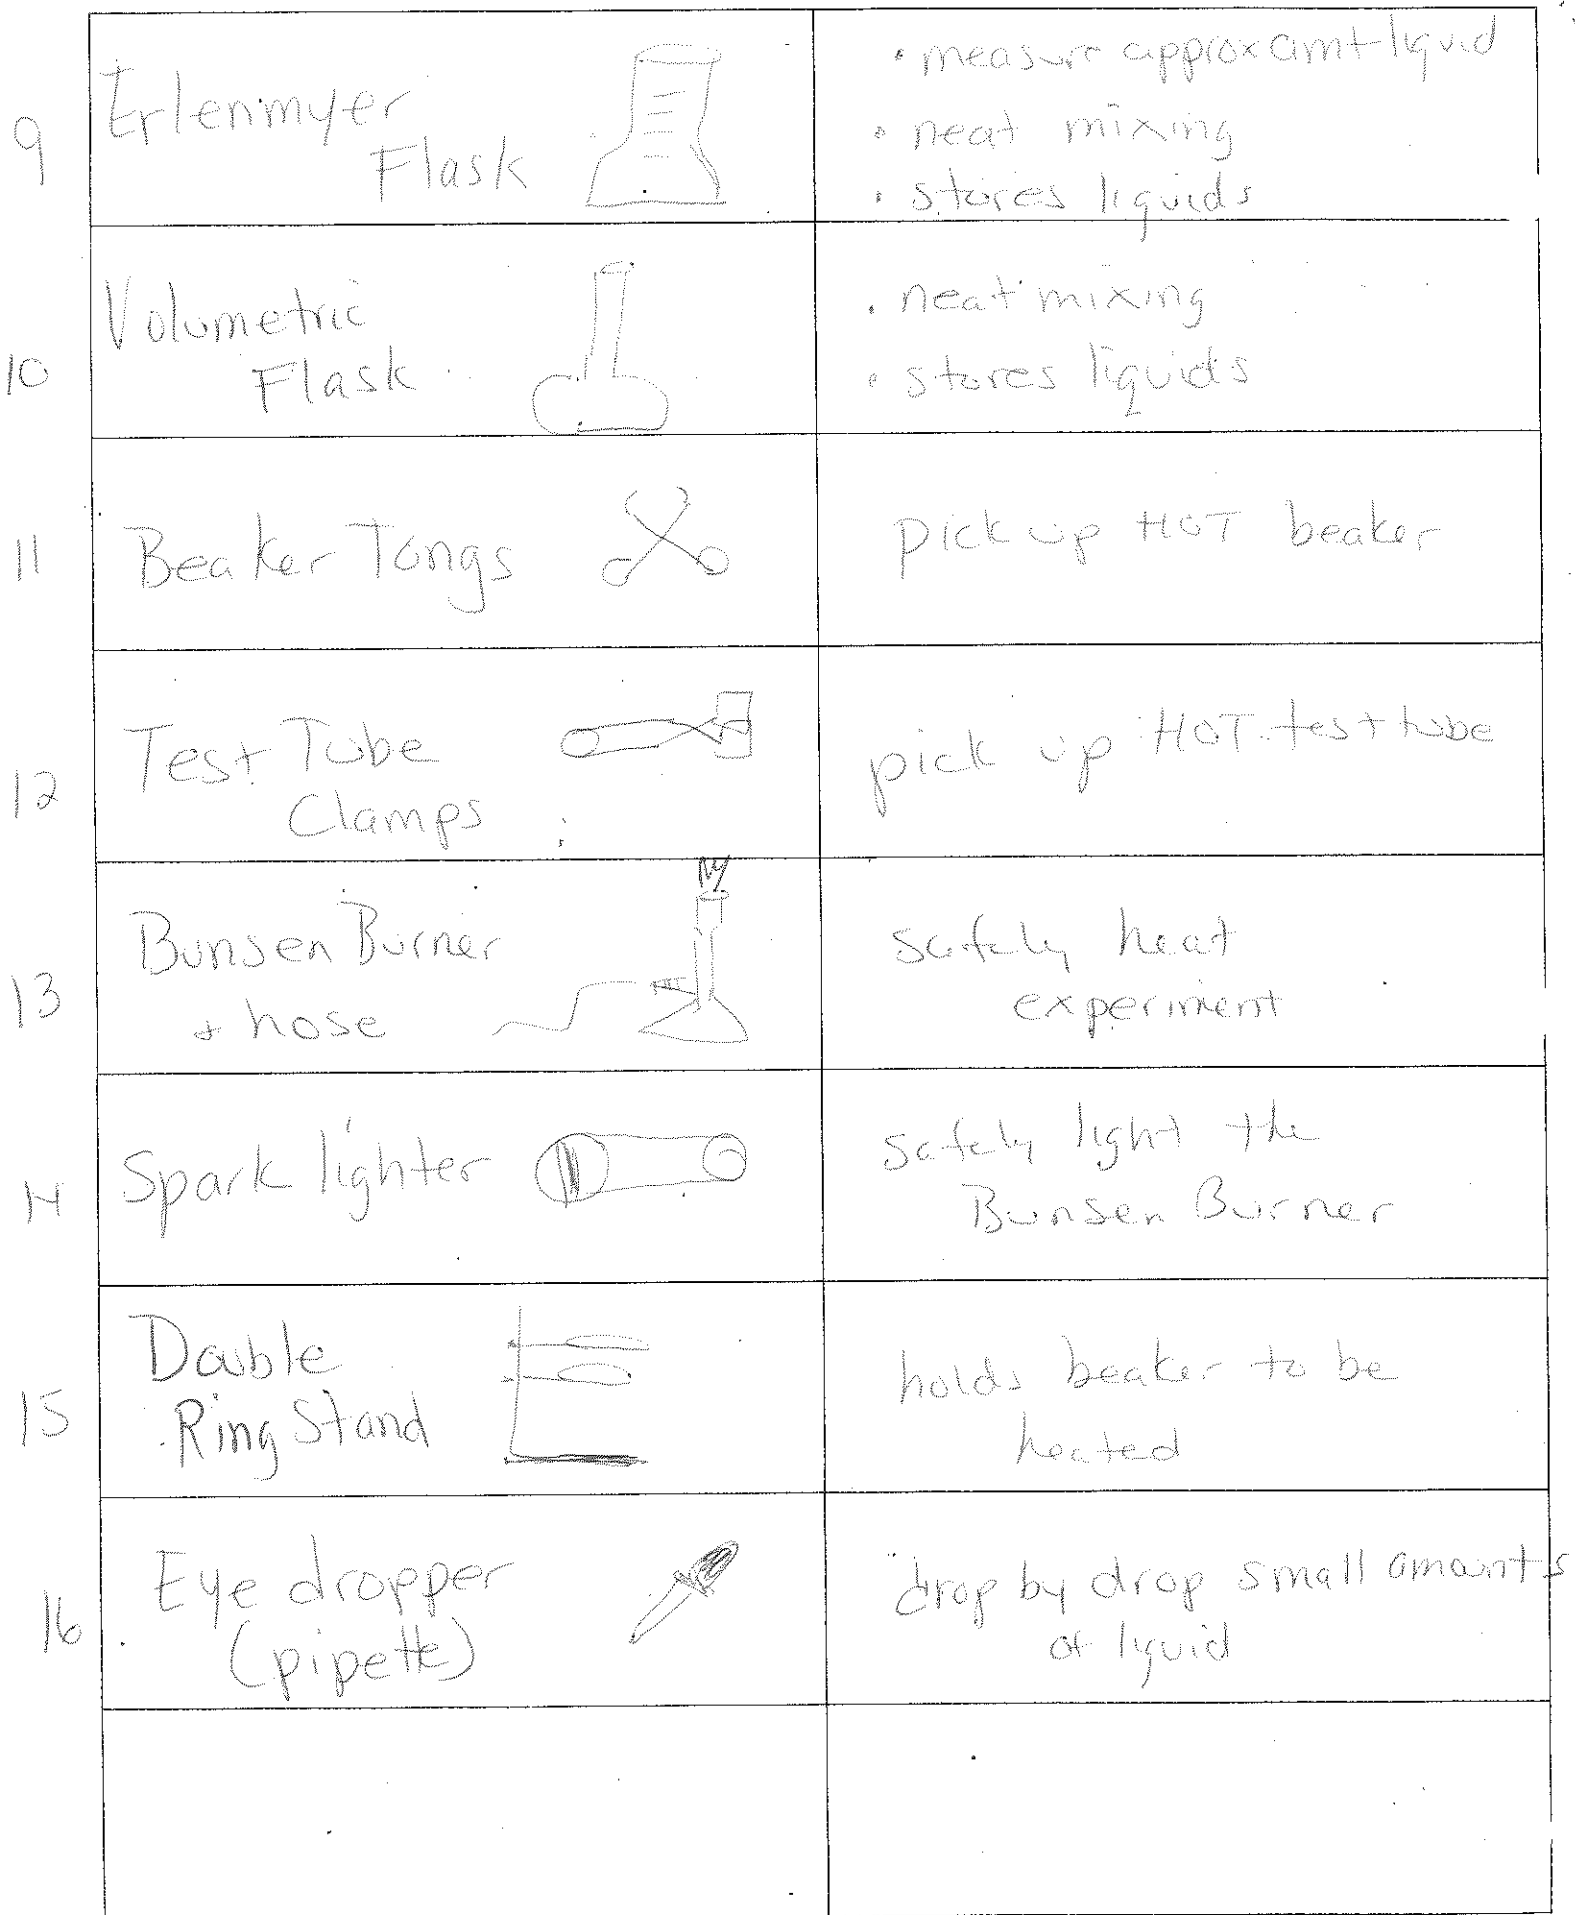 9
Erlenmyer
Flask
• measure approx amt liquid
• neat mixing
• stores liquids
10
Volumetric
Flask
• neat mixing
• stores liquids
11
Beaker Tongs
pick up HOT beaker
12
Test Tube
Clamps
pick up HOT test tube
13
Bunsen Burner
+ hose
safely heat
experiment
14
Spark lighter
safely light the
Bunsen Burner
15
Double
Ring Stand
holds beaker to be
heated
16
Eye dropper
(pipette)
drop by drop small amounts
of liquid